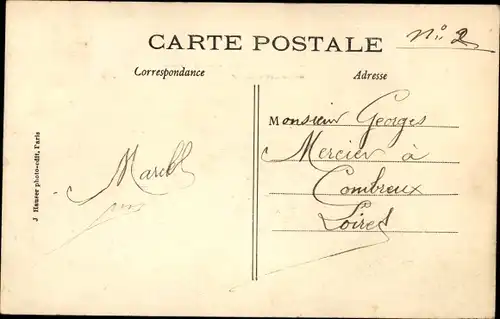 CARTE POSTALE
No 2
Correspondance
Adresse
Monsieur Georges
Mercier à
Combreux
Loiret
J Hauser photo-édit. Paris